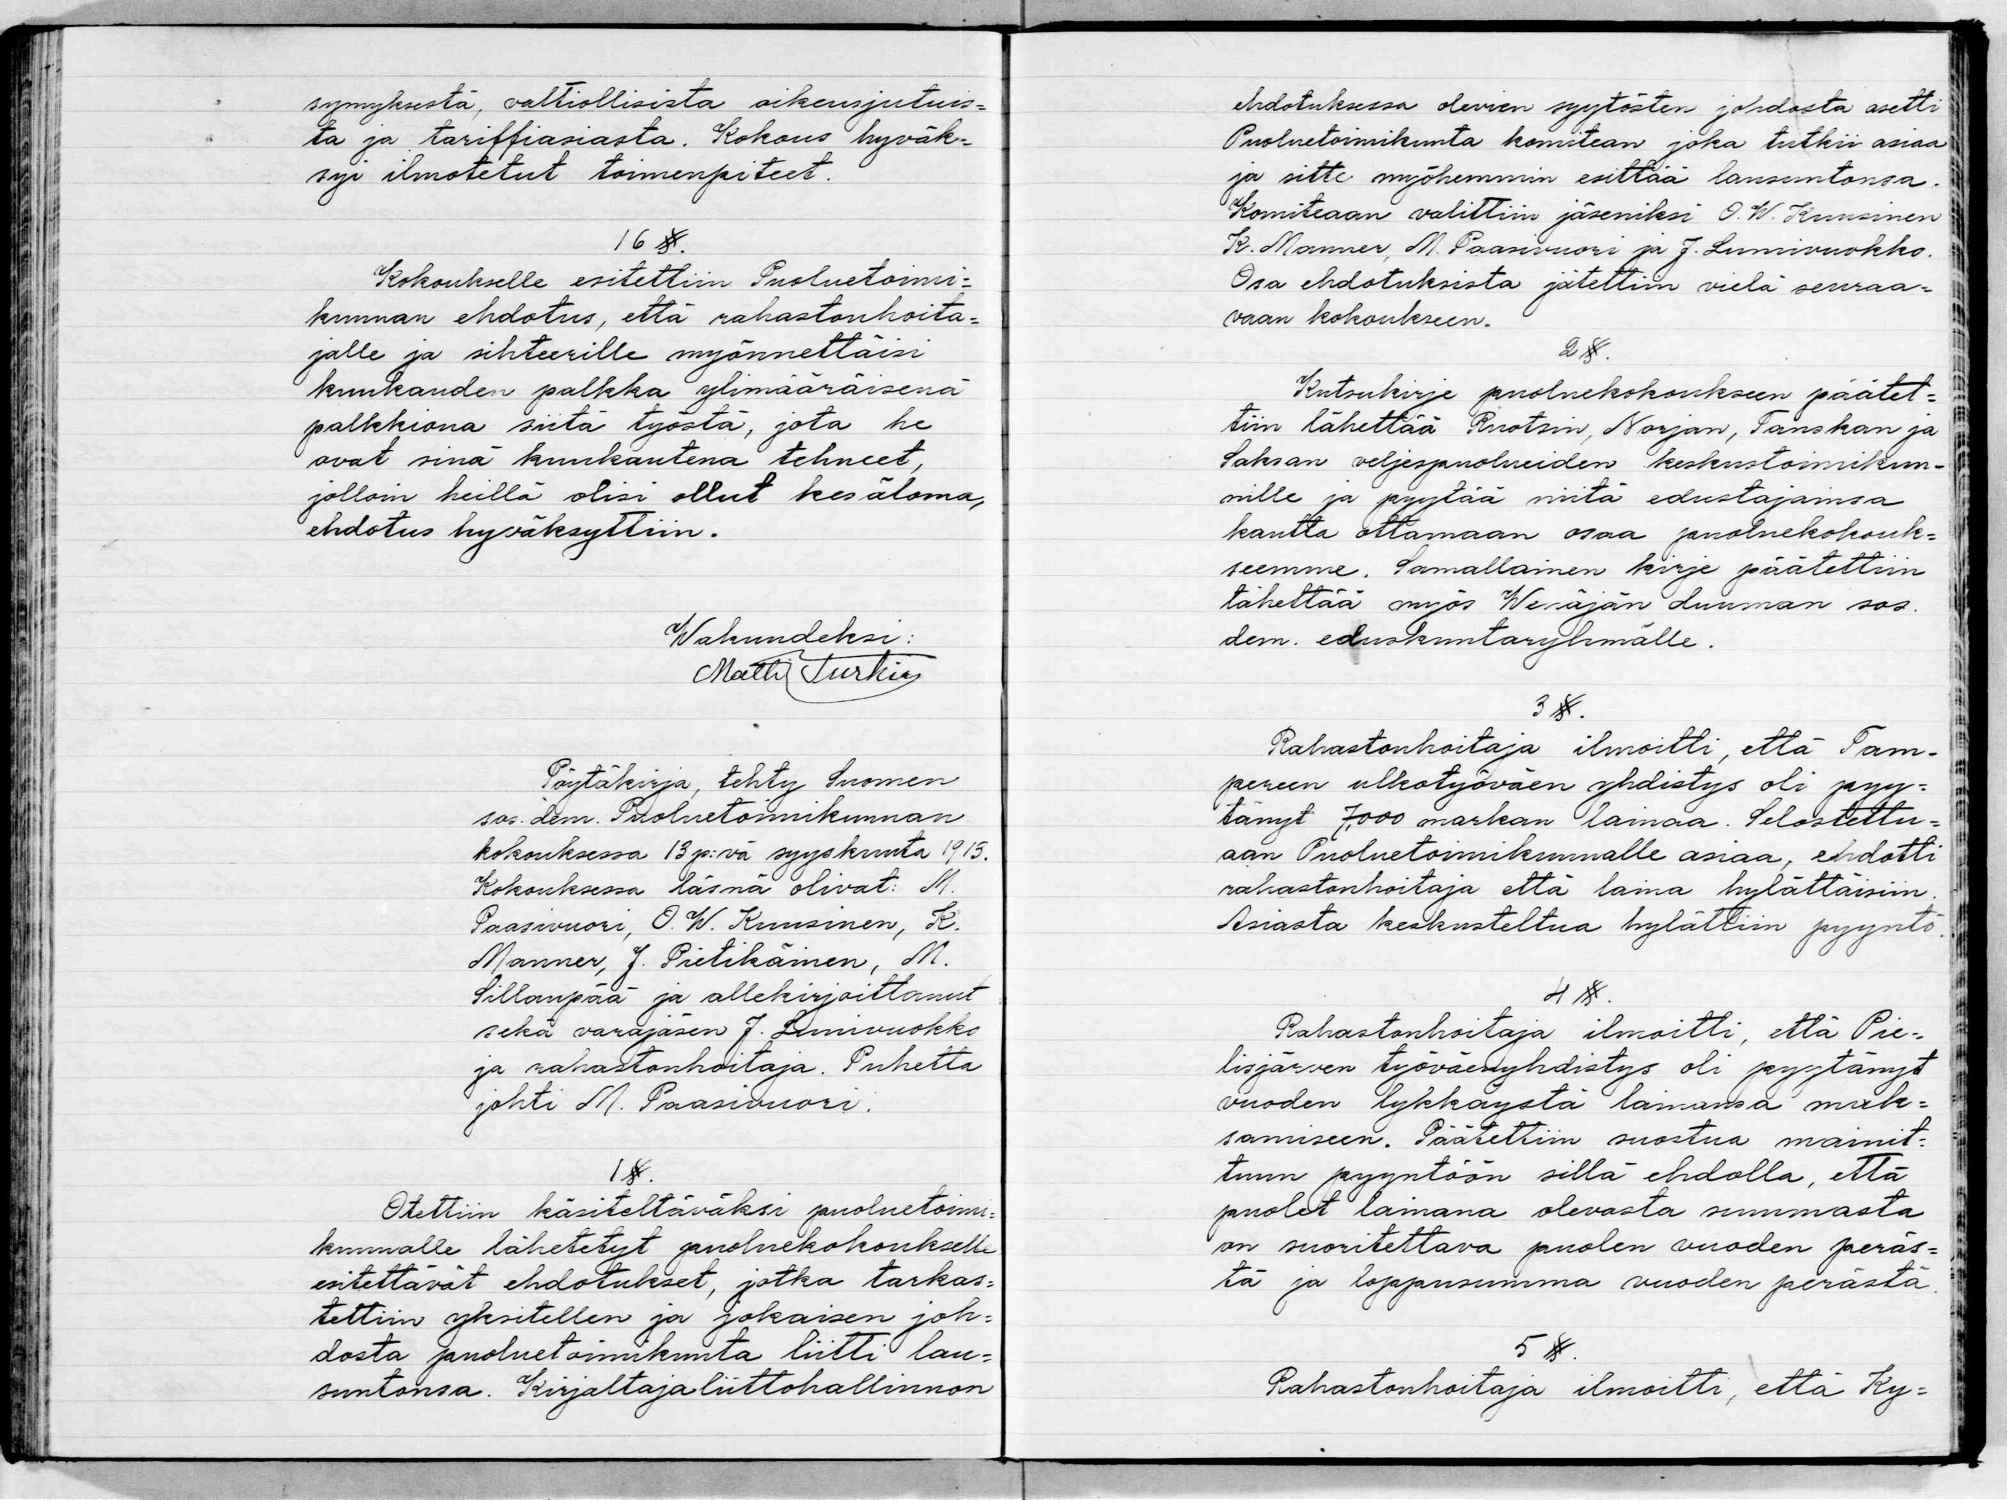 symyksestä, valtiollisista oikeusjutuis=
ta ja tariffiasiasta. Kokous hyväk=
syi ilmotetut toimenpiteet.
16 §.
Kokoukselle esitettiin Puoluetoimi=
kunnan ehdotus, että rahastonhoita=
jalle ja sihteerille myönnettäisi
kuukauden palkka ylimääräisenä
palkkiona siitä työstä, jota he
ovat sinä kuukautena tehneet,
jolloin heillä olisi ollut kesäloma,
ehdotus hyväksyttiin.
Wakuudeksi:
Matti Turkia
Pöytäkirja, tehty Suomen
sos. dem. Puoluetoimikunnan
kokouksessa 13 p:vä syyskuuta 1913.
Kokouksessa läsnä olivat: M.
Paasivuori, O. W. Kuusinen, K.
Manner, J. Pietikäinen, M.
Sillanpää ja allekirjoittanut
sekä varajäsen J. Lumivuokko
ja rahastonhoitaja. Puhetta
johti M. Paasivuori.
1 §.
Otettiin käsiteltäväksi puoluetoimi=
kunnalle lähetetyt puoluekokoukselle
esitettävät ehdotukset, jotka tarkas=
tettiin yksitellen ja jokaisen joh=
dosta puoluetoimikunta liitti lau=
suntonsa. Kirjaltajaliittohallinnon
ehdotuksessa olevien syytösten johdosta asetti
Puoluetoimikunta komitean joka tutkii asiaa
ja sitte myöhemmin esittää lausuntonsa.
Komiteaan valittiin jäseniksi O. W. Kuusinen
K. Manner, M. Paasivuori ja J. Lumivuokko.
Osa ehdotuksista jätettiin vielä seuraa=
vaan kokoukseen.
2 §.
Kutsukirje puoluekokoukseen päätet=
tiin lähettää Ruotsin, Norjan, Tanskan ja
Saksan veljespuolueiden keskustoimikun=
nille ja pyytää niitä edustajainsa
kautta ottamaan osaa puoluekokouk=
seemme. Samallainen kirje päätettiin
lähettää myös Wenäjän duuman sos.
dem. eduskuntaryhmälle.
3 §.
Rahastonhoitaja ilmoitti, että Tam=
pereen ulkotyöväen yhdistys oli pyy=
tänyt 7,000 markan lainaa. Selostettu=
aan Puoluetoimikunnalle asiaa, ehdotti
rahastonhoitaja että laina hylättäisiin.
Asiasta keskusteltua hylättiin pyyntö.
4 §.
Rahastonhoitaja ilmoitti, että Pie=
lisjärven työväenyhdistys oli pyytänyt
vuoden lykkäystä lainansa mak=
samiseen. Päätettiin suostua mainit=
tuun pyyntöön sillä ehdolla, että
puolet lainana olevasta summasta
on suoritettava puolen vuoden peräs=
tä ja loppusumma vuoden perästä.
5 §.
Rahastonhoitaja ilmoitti, että Ky=